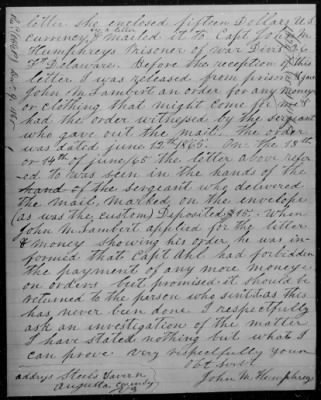 letter she enclosed fifteen Dollars U S
currency, & mailed it to Capt John M.
in a letter
Humphreys Prisoner of war Div 26
Ft Delaware. Before the reception of this
letter I was released from prison & gave
John M. Lambert an order for any money
or clothing that might come for me &
had the order witnessed by the sergeant
who gave out the mail. the order
was dated june 12th 1865. On the 13th
or 14th of june/65 the letter above refer
ed to was seen in the hands of the
hand of the sergeant who delivered
the mail, marked on the envelope
(as was the custom) Deposited $15. When
John M Lambert applied for the letter
& money showing his order he was in-
formed that Capt Ahl had forbidden
the payment of any more moneys
on orders but promised it should be
returned to the person who sent it as this
has never been done I respectfully
ask an investigation of the matter
I have stated nothing but what I
can prove very respectfully your
obt servt
John M. Humphreys
address Steels Tavern
Augusta county